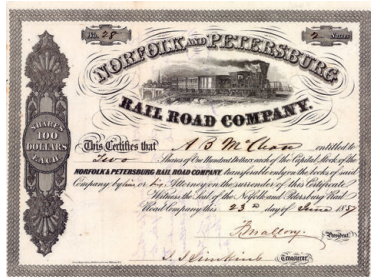 No. 28
2 Shares
NORFOLK AND PETERSBURG
RAIL ROAD COMPANY.
SHARES
100
DOLLARS
EACH
This Certifies that A B McClean entitled to
Two Shares of One Hundred Dollars each of the Capital Stock of the
NORFOLK & PETERSBURG RAIL ROAD COMPANY transferable only on the books of said
Company by him or his Attorney on the surrender of this Certificate
Witness the Seal of the Norfolk and Petersburg Rail
Road Company this 23d day of June
President.
Treasurer.